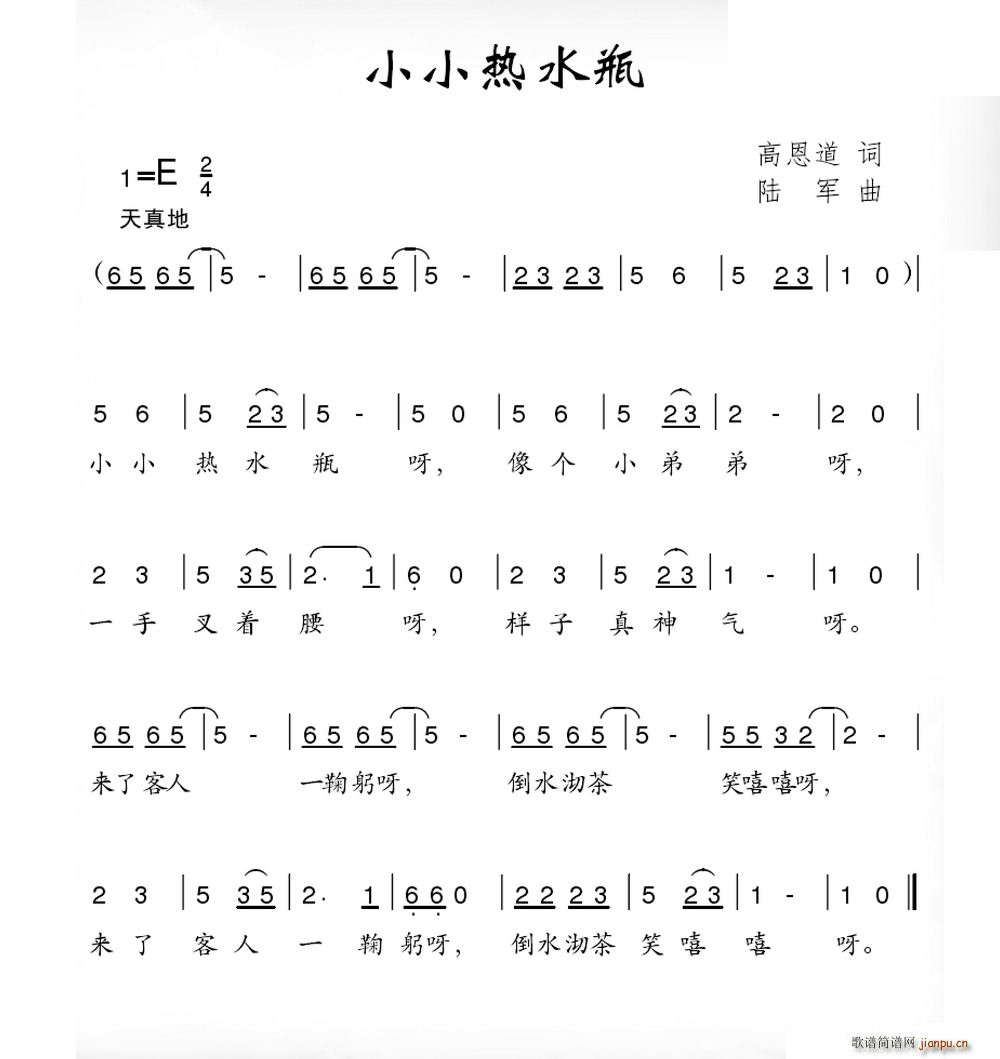 小小热水瓶
高恩道 词
1=E 2/4
陆 军 曲
天真地
(65 65 | 5 - | 65 65 | 5 - | 23 23 | 5 6 | 5 23 | 1 0 )|
5 6 | 5 23 | 5 - | 5 0 | 5 6 | 5 23 | 2 - | 2 0 |
小 小 热 水 瓶 呀, 像 个 小 弟 弟 呀,
2 3 | 5 35 | 2. 1 | 6 0 | 2 3 | 5 23 | 1 - | 1 0 |
一 手 叉 着 腰 呀, 样 子 真 神 气 呀。
65 65 | 5 - | 65 65 | 5 - | 65 65 | 5 - | 55 32 | 2 - |
来了客人 一鞠躬呀, 倒水沏茶 笑嘻嘻呀,
2 3 | 5 35 | 2. 1 | 66 0 | 22 23 | 5 23 | 1 - | 1 0 ‖
来 了 客 人 一 鞠 躬呀, 倒水沏茶 笑 嘻 嘻 呀。
歌谱简谱网 jianpu.cn